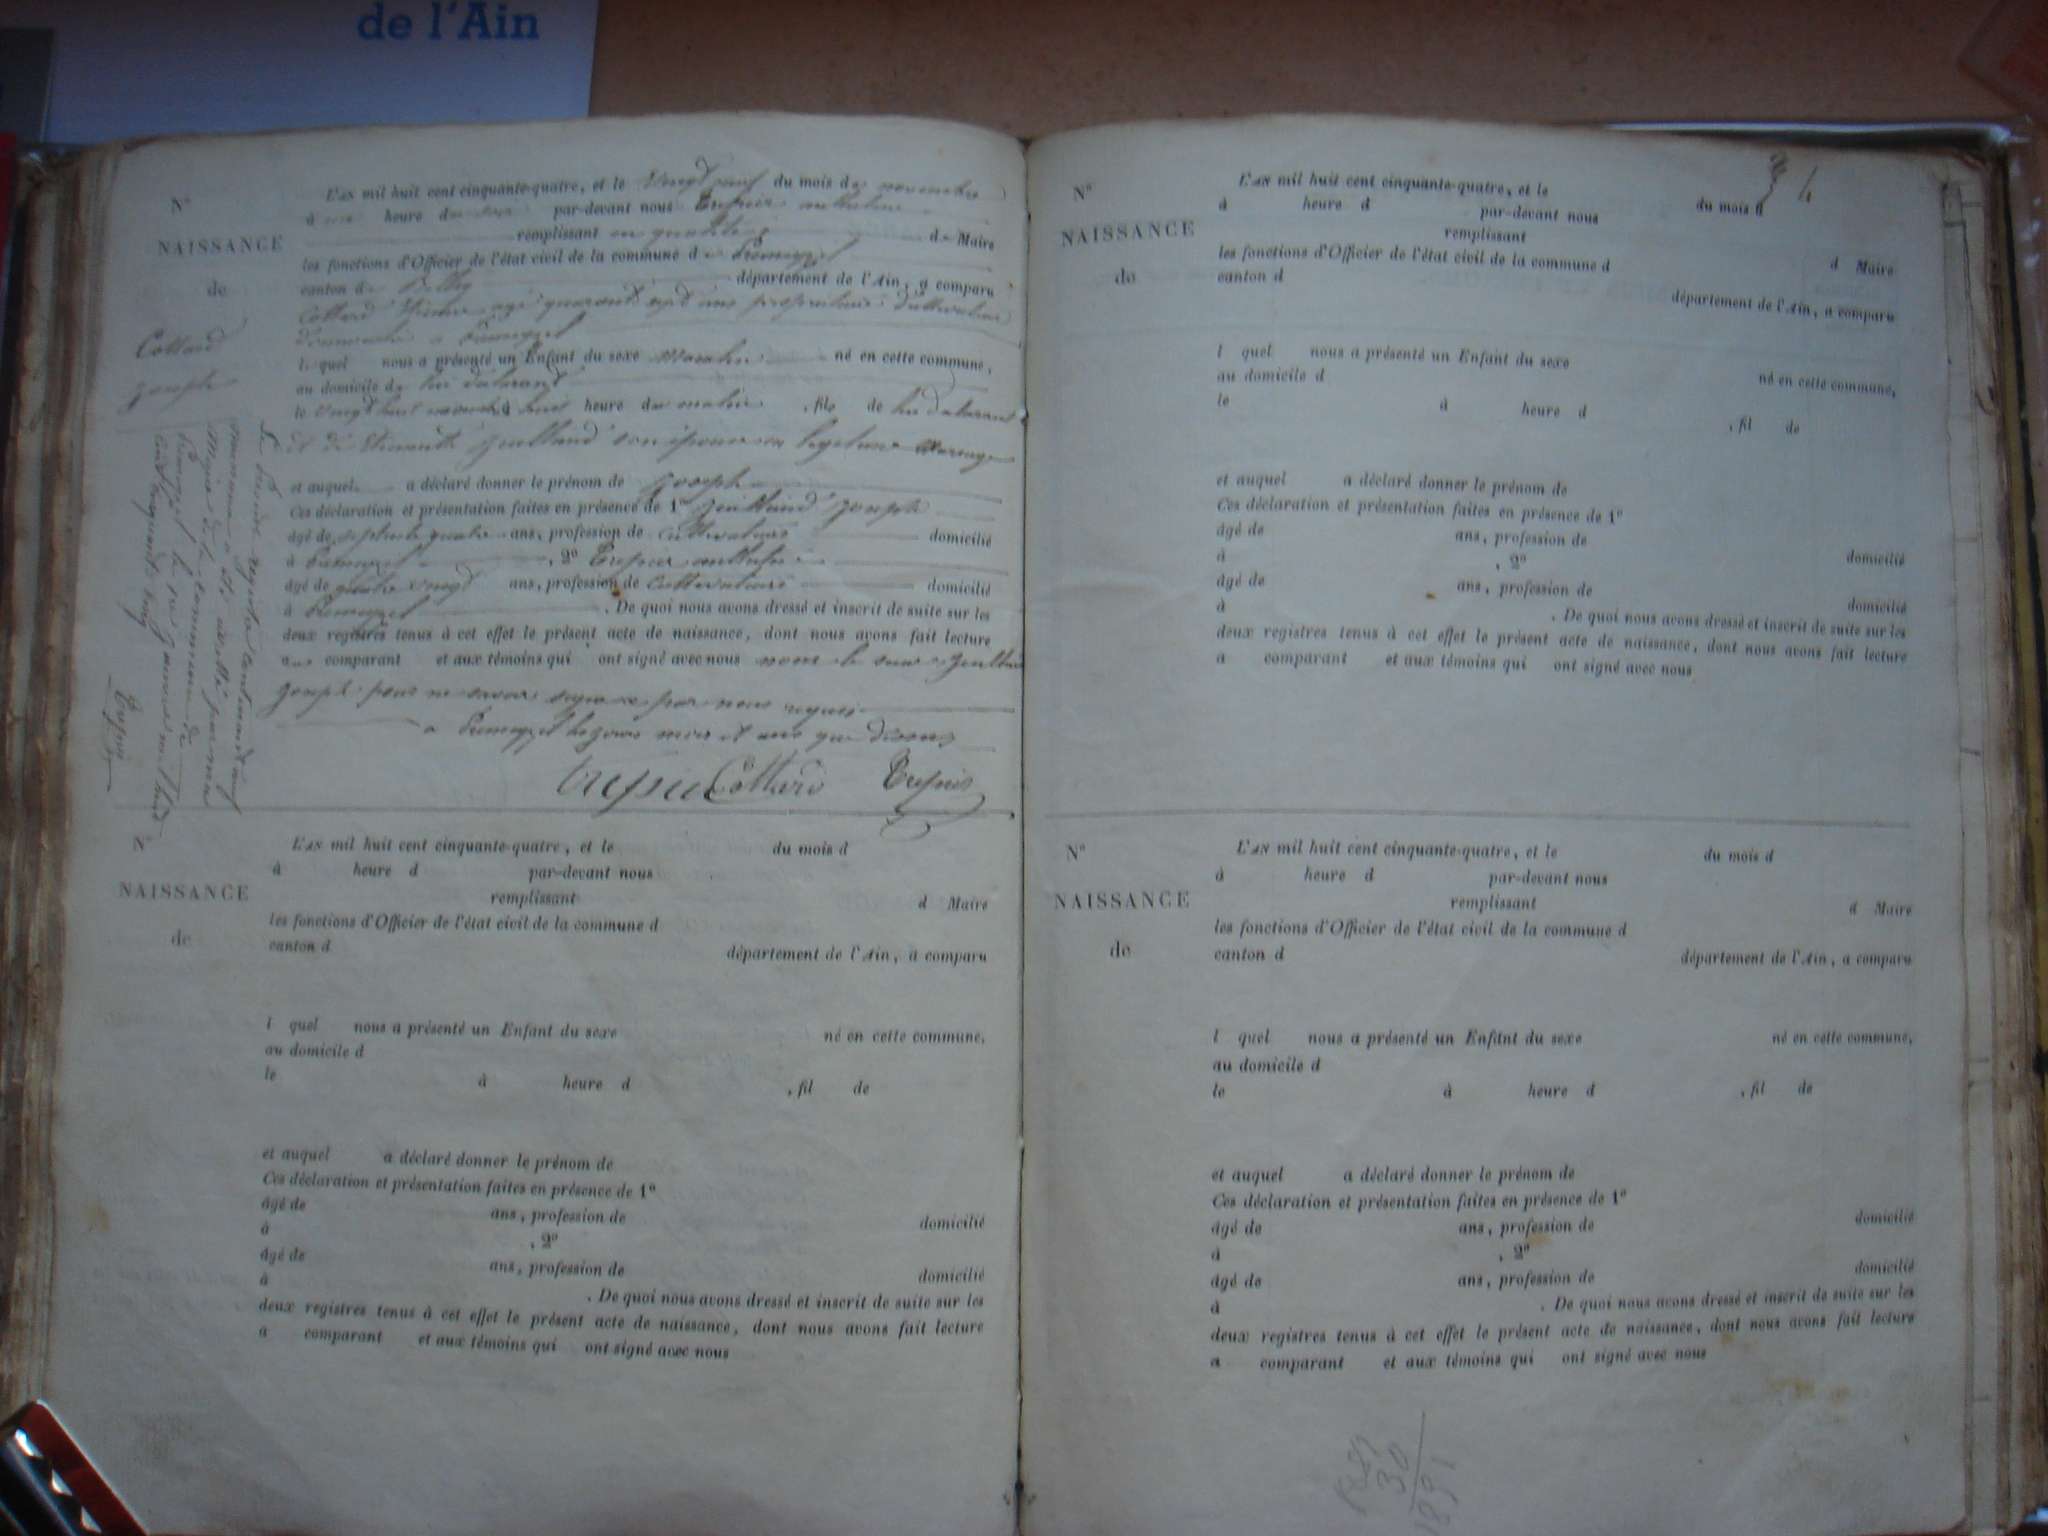 de l'Ain
N°
NAISSANCE
de
Collard
Joseph
L'AN mil huit cent cinquante-quatre, et le Vingt neuf du mois de novembre
à heure du par-devant nous Trepier anthelme
remplissant en qualité de Maire
les fonctions d'Officier de l'état civil de la commune de Premeyzel
canton de Belley département de l'Ain, a comparu
Collard agé quarante sept ans propriétaire Cultivateur
domicilié a Premeyzel
lequel nous a présenté un Enfant du sexe Masculin né en cette commune,
au domicile de lui déclarant
le Vingt huit novembre à heure du matin, fils de lui déclarant
et de son épouse en légitime Mariage
et auquel a déclaré donner le prénom de Joseph
Ces déclaration et présentation faites en présence de 1° Joseph
âgé de septante quatre ans, profession de Cultivateur domicilié
à Premeyzel, 2° Trepier anthelme
âgé de quatre Vingt ans, profession de Cultivateur domicilié
à Premeyzel. De quoi nous avons dressé et inscrit de suite sur les
deux registres tenus à cet effet le présent acte de naissance, dont nous avons fait lecture
aux comparant et aux témoins qui ont signé avec nous non le
Joseph pour ne savoir signer de par nous requis
a Premeyzel les jours mois et ans que dessus
trepier Collard Trepier
Le présent registre contenant neuf
a été arrêté par nous
Maire de la commune de
Premeyzel le Janvier mil huit
cent cinquante cinq
Trepier
N°
NAISSANCE
de
L'AN mil huit cent cinquante-quatre, et le du mois d
à heure d par-devant nous
remplissant
d Maire
les fonctions d'Officier de l'état civil de la commune d
canton d
département de l'Ain, a comparu
l quel nous a présenté un Enfant du sexe né en cette commune,
au domicile d
le à heure d , fil de
et auquel a déclaré donner le prénom de
Ces déclaration et présentation faites en présence de 1°
âgé de ans, profession de domicilié
à , 2°
âgé de ans, profession de domicilié
à . De quoi nous avons dressé et inscrit de suite sur les
deux registres tenus à cet effet le présent acte de naissance, dont nous avons fait lecture
a comparant et aux témoins qui ont signé avec nous
4
N°
NAISSANCE
de
L'AN mil huit cent cinquante-quatre, et le du mois d
à heure d par-devant nous
remplissant
d Maire
les fonctions d'Officier de l'état civil de la commune d
canton d
département de l'Ain, a comparu
l quel nous a présenté un Enfant du sexe né en cette commune,
au domicile d
le à heure d , fil de
et auquel a déclaré donner le prénom de
Ces déclaration et présentation faites en présence de 1°
âgé de ans, profession de domicilié
à , 2°
âgé de ans, profession de domicilié
à . De quoi nous avons dressé et inscrit de suite sur les
deux registres tenus à cet effet le présent acte de naissance, dont nous avons fait lecture
a comparant et aux témoins qui ont signé avec nous
N°
NAISSANCE
de
L'AN mil huit cent cinquante-quatre, et le du mois d
à heure d par-devant nous
remplissant
d Maire
les fonctions d'Officier de l'état civil de la commune d
canton d
département de l'Ain, a comparu
l quel nous a présenté un Enfant du sexe né en cette commune,
au domicile d
le à heure d , fil de
et auquel a déclaré donner le prénom de
Ces déclaration et présentation faites en présence de 1°
âgé de ans, profession de domicilié
à , 2°
âgé de ans, profession de domicilié
à . De quoi nous avons dressé et inscrit de suite sur les
deux registres tenus à cet effet le présent acte de naissance, dont nous avons fait lecture
a comparant et aux témoins qui ont signé avec nous
30
1891